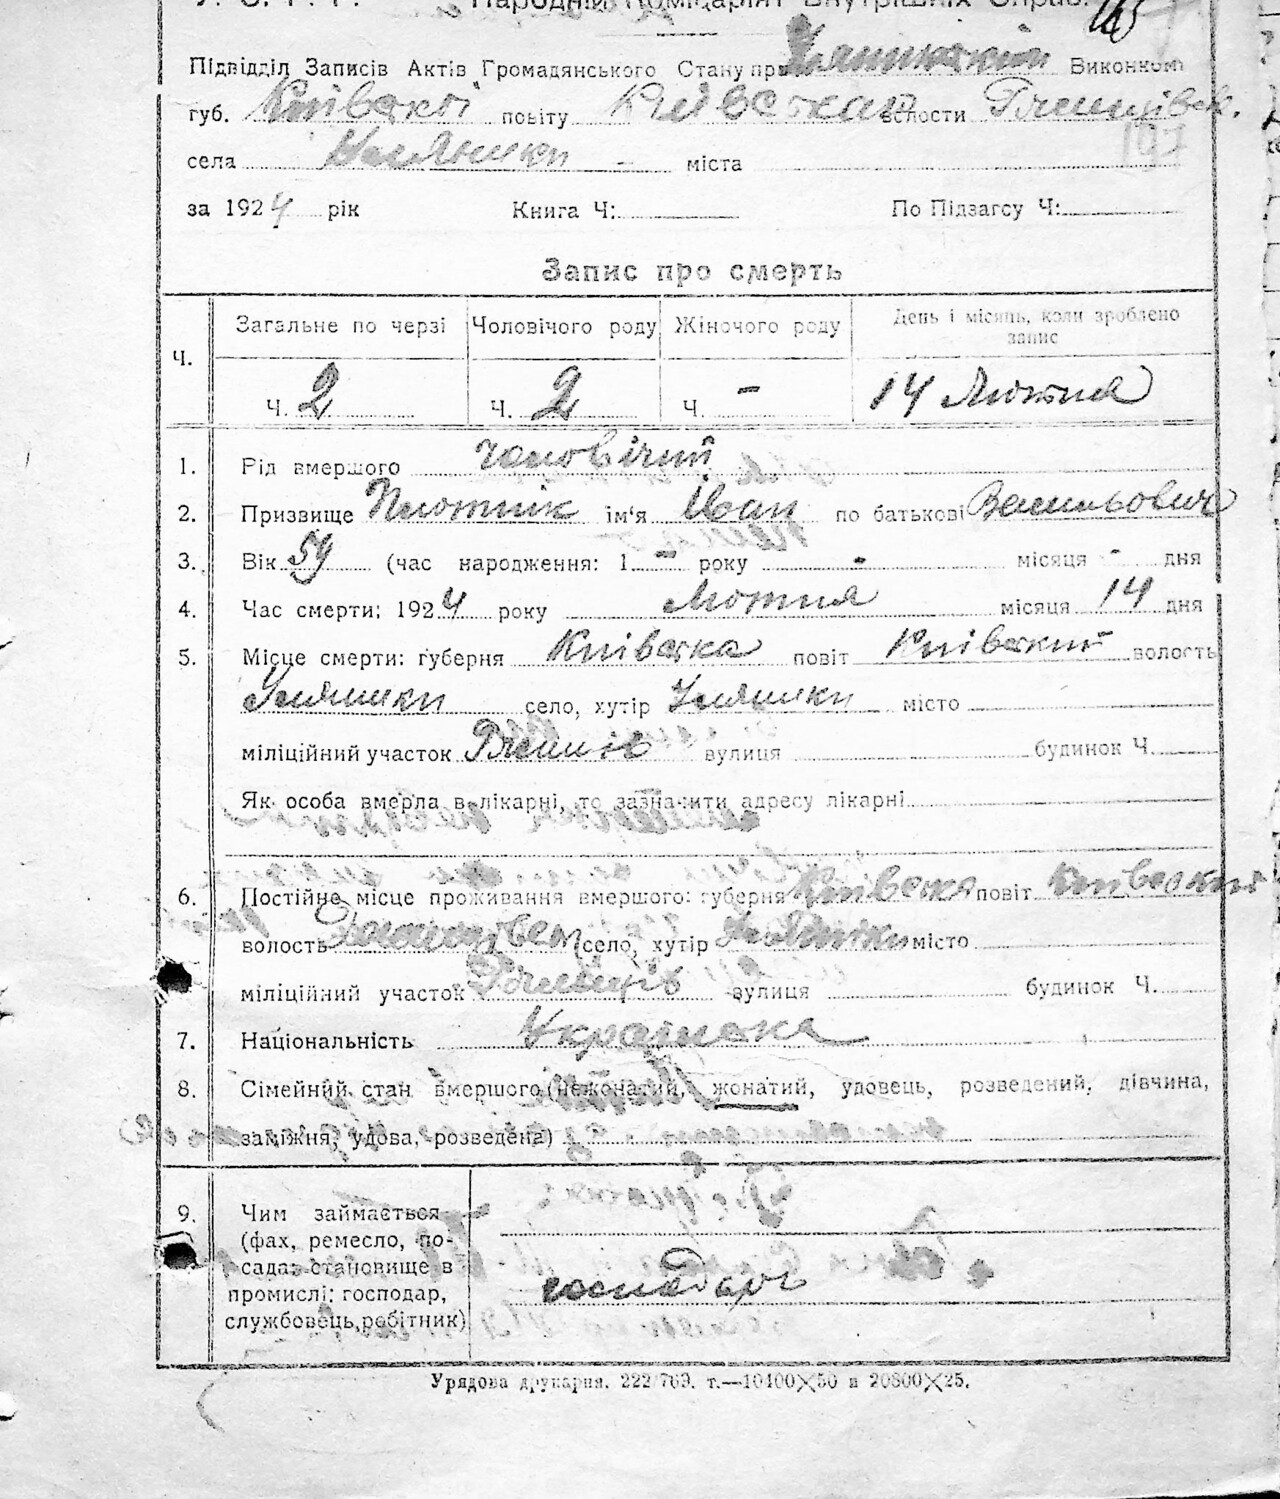 У. С. Р. Р. Народній Комісаріят Внутрішніх Справ. 165
Підвідділ Записів Актів Громадянського Стану при Уляниківскім Виконкомі
губ. Київскої повіту Київскаго волости Ржищівск.
села Уляники - міста
107
за 1924 рік Книга Ч: По Підзагсу Ч:
Запис про смерть
Ч. Загальне по черзі Чоловічого роду Жіночого роду День і місяць, коли зроблено запис
Ч. 2 Ч. 2 Ч. - 14 Лютня
1. Рід вмершого чоловічий
2. Призвище Плотнік ім'я Іван по батькові Васильович
3. Вік 59 (час народження: 1 - року - місяця - дня
4. Час смерти: 1924 року Лютня місяця 14 дня
5. Місце смерти: губерня Київска повіт Київский волость
Уляники село, хутір Уляники місто
міліційний участок Ржищів вулиця будинок Ч.
Як особа вмерла в лікарні, то зазначити адресу лікарні
6. Постійне місце проживання вмершого: губерня Київска повіт Київский
волость (село, хутір Уляники місто
міліційний участок Ржищів вулиця будинок Ч.
7. Національність Украінска
8. Сімейний стан вмершого (нежонатий, жонатий, удовець, розведений, дівчина,
заміжня, удова, розведена)
9. Чим займається
(фах, ремесло, по-
сада: становище в
промислі: господар,
службовець, робітник)
господарь
Урядова друкарня. 222/769. т.—10400×50 и 20800×25.